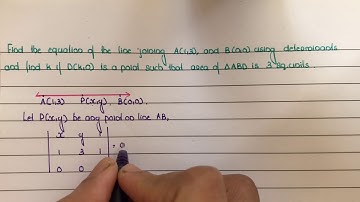 Find the equation of the line joining A(1,3) and B(0,0) using determinants
and find k if D(k,0) is a point such that area of ΔABD is 3 sq.units.
A(1,3) P(x,y) B(0,0).
Let P(x,y) be any point on line AB,
x y
1 3 1 = 0
0 0